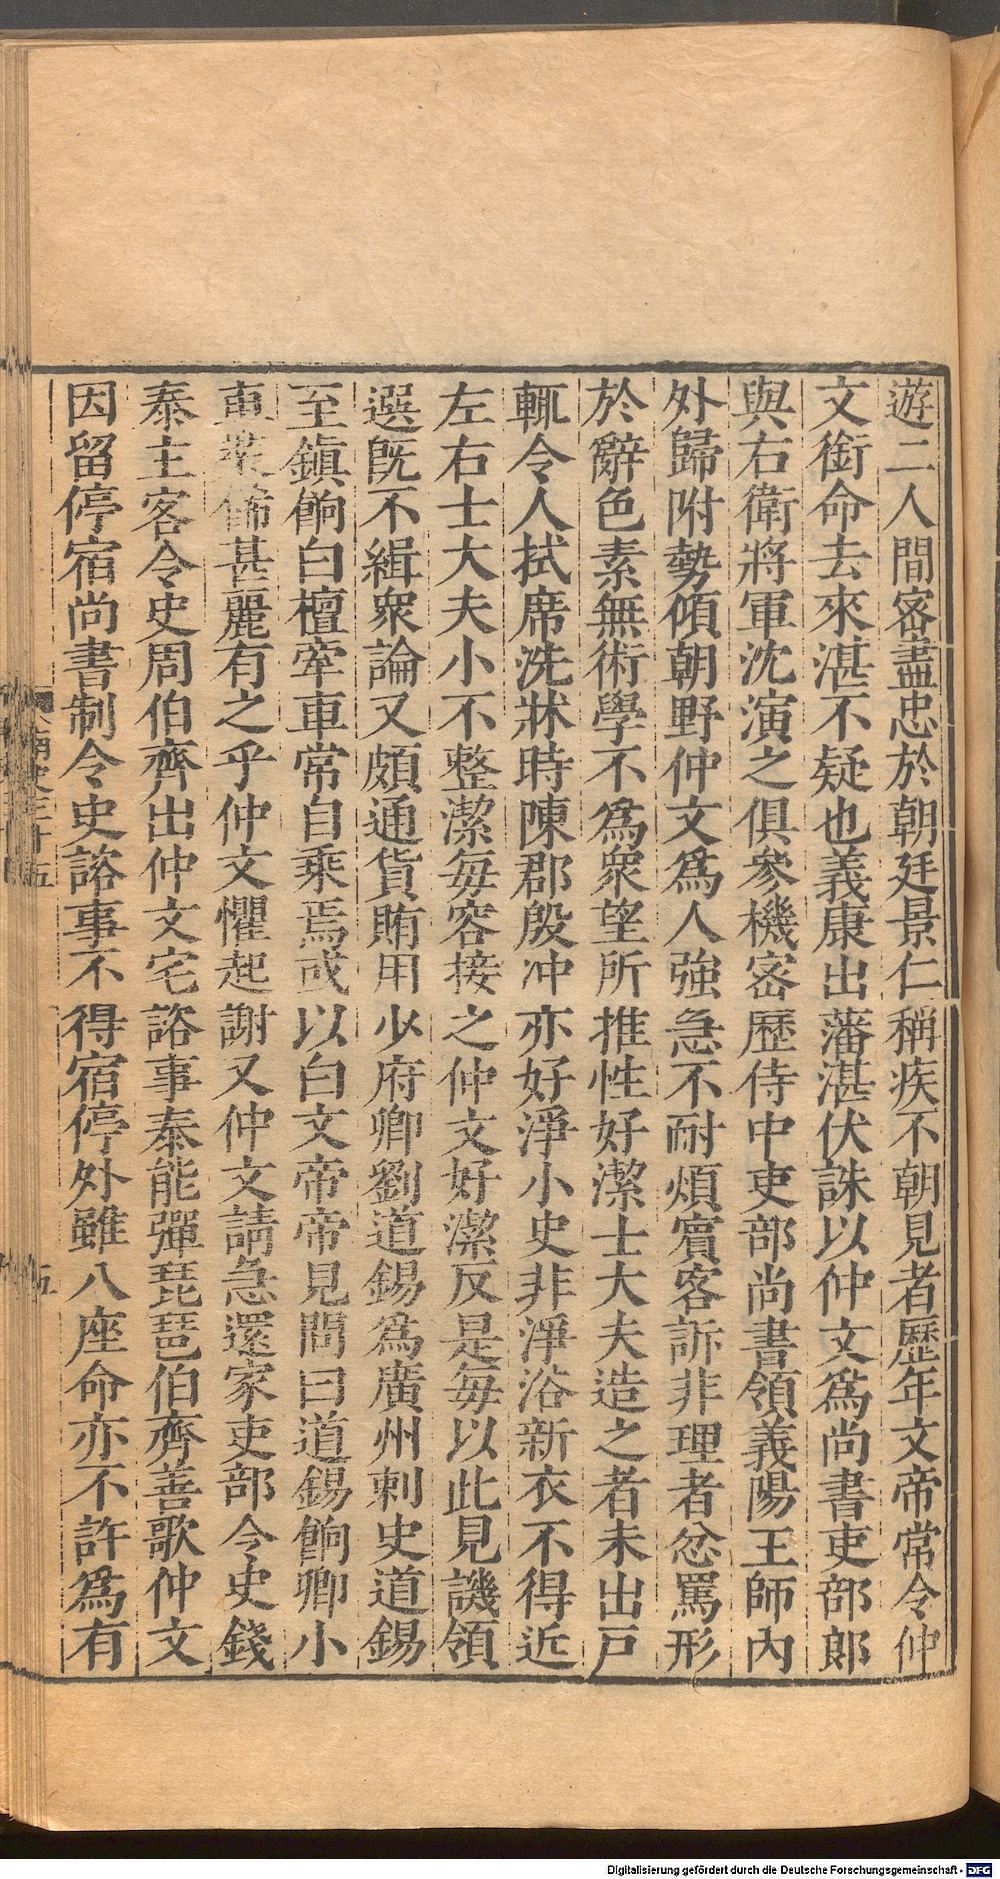 遊二人間密盡忠於朝廷景仁稱疾不朝見者歷年文帝常令仲
文銜命去來湛不疑也義康出藩湛伏誅以仲文爲尚書吏部郎
與右衛將軍沈演之俱參機密歷侍中吏部尚書領義陽王師內
外歸附勢傾朝野仲文爲人強急不耐煩賓客訴非理者忿罵形
於辭色素無術學不爲衆望所推性好潔士大夫造之者未出戶
輒令人拭席洗牀時陳郡殷冲亦好淨小史非淨浴新衣不得近
左右士大夫小不整潔每容接之仲文好潔反是每以此見譏領
選旣不緝衆論又頗通貨賄用少府卿劉道錫爲廣州刺史道錫
至鎮餉白檀牽車常自乘焉或以白文帝帝見問曰道錫餉卿小
車裝飾甚麗有之乎仲文懼起謝又仲文請急還家吏部令史錢
泰主客令史周伯齊出仲文宅諮事泰能彈琵琶伯齊善歌仲文
因留停宿尚書制令史諮事不得宿停外雖八座命亦不許爲有
南史三十五
五
Digitalisierung gefördert durch die Deutsche Forschungsgemeinschaft - DFG